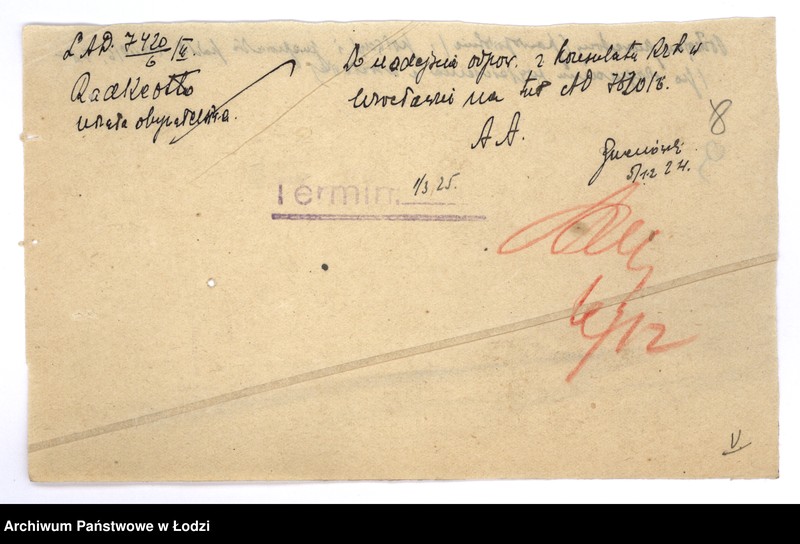 L.AD. 7420/6/II
Radke Otto
utrata obywatelstwa.
Do nadejścia odpow. z Konsulatu R.P. w
Wrocławiu na tut AD 7420/6.
A A.
5/12 24.
Termin 1/3 25.
6/12
8
V.
Archiwum Państwowe w Łodzi